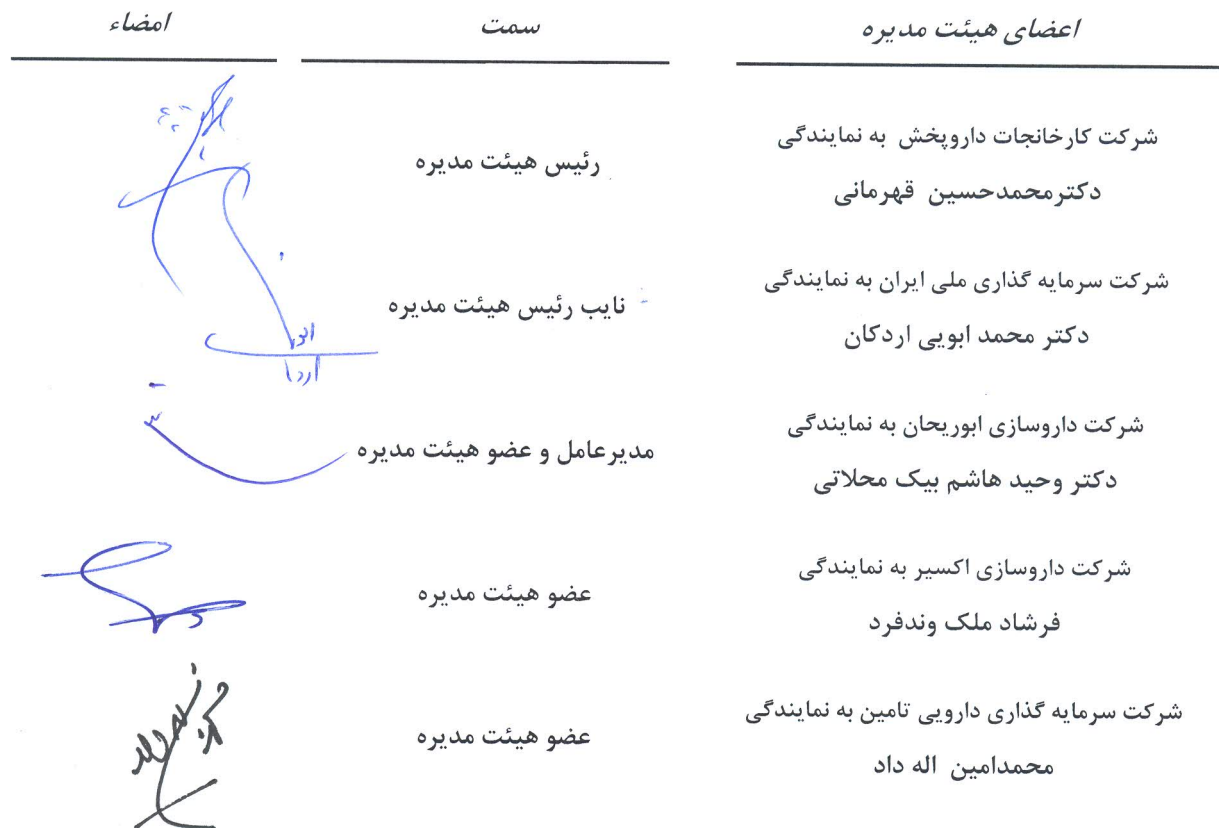 اعضای هیئت مدیره
سمت
امضاء
شرکت کارخانجات داروپخش به نمایندگی
دکترمحمدحسین قهرمانی
رئیس هیئت مدیره
شرکت سرمایه گذاری ملی ایران به نمایندگی
دکتر محمد ابویی اردکان
نایب رئیس هیئت مدیره
شرکت داروسازی ابوریحان به نمایندگی
دکتر وحید هاشم بیک محلاتی
مدیرعامل و عضو هیئت مدیره
شرکت داروسازی اکسیر به نمایندگی
فرشاد ملک وندفرد
عضو هیئت مدیره
شرکت سرمایه گذاری دارویی تامین به نمایندگی
محمدامین اله داد
عضو هیئت مدیره